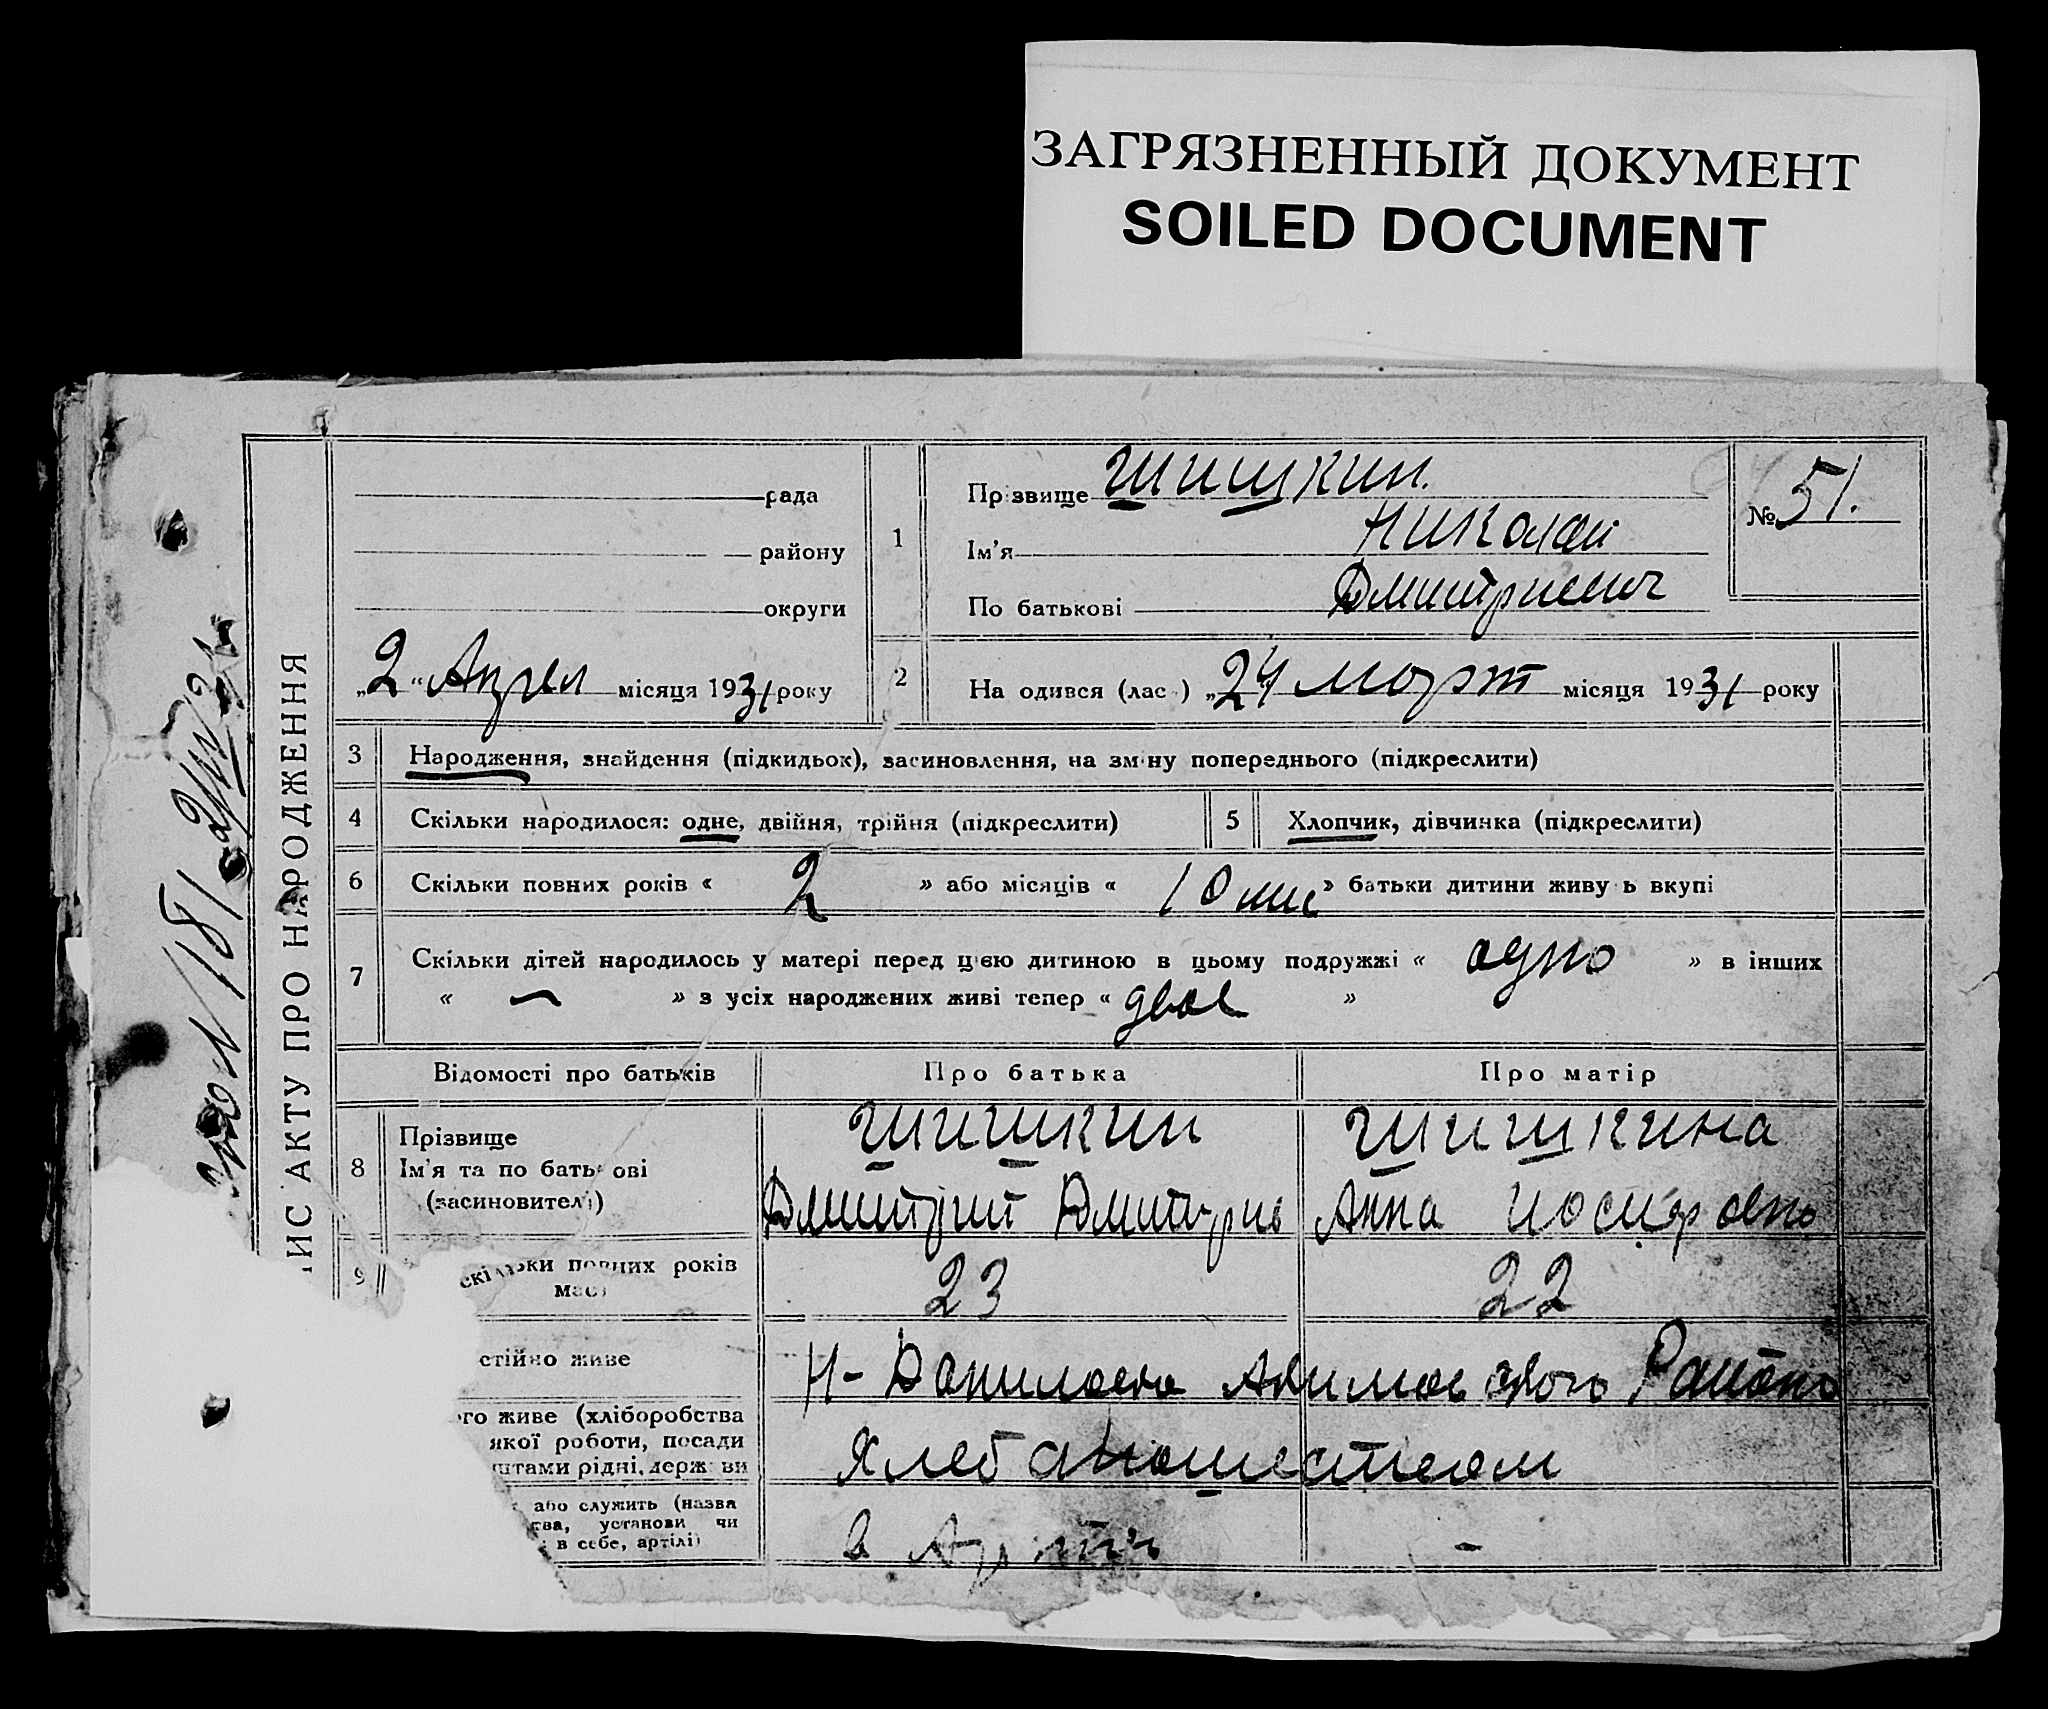 ЗАГРЯЗНЕННЫЙ ДОКУМЕНТ
SOILED DOCUMENT
ИС АКТУ ПРО НАРОДЖЕННЯ
рада
району
округи
„2“ Апрел місяця 1931 року
1
Прізвище Шишкин.
Ім'я Николай
По батькові Дмитриевич
№ 51.
2
На одився (лас ) „24 март місяця 1931 року
3 Народження, знайдення (підкидьок), засиновлення, на зміну попереднього (підкреслити)
4 Скільки народилося: одне, двійня, трійня (підкреслити)
5 Хлопчик, дівчинка (підкреслити)
6 Скільки повних років « 2 » або місяців « 10 мис » батьки дитини живу ь вкупі
7 Скільки дітей народилось у матері перед цією дитиною в цьому подружжі « одно » в інших
« — » з усіх народжених живі тепер « двое »
Відомості про батьків Про батька Про матір
8 Прізвище
Ім'я та по батькові
(засновителі)
Шишкин Шишкина
Дмитрий Дмитрив Анна Иосифовно
9 скільки повних років
має
23 22
стійно живе Н-Даниловка Акимовского Района
ого живе (хліборобства
якої роботи, посади
штами рідні, держави
Хлебапашеством
або служить (назва
тва, установи чи
в себе, артілі)
в -